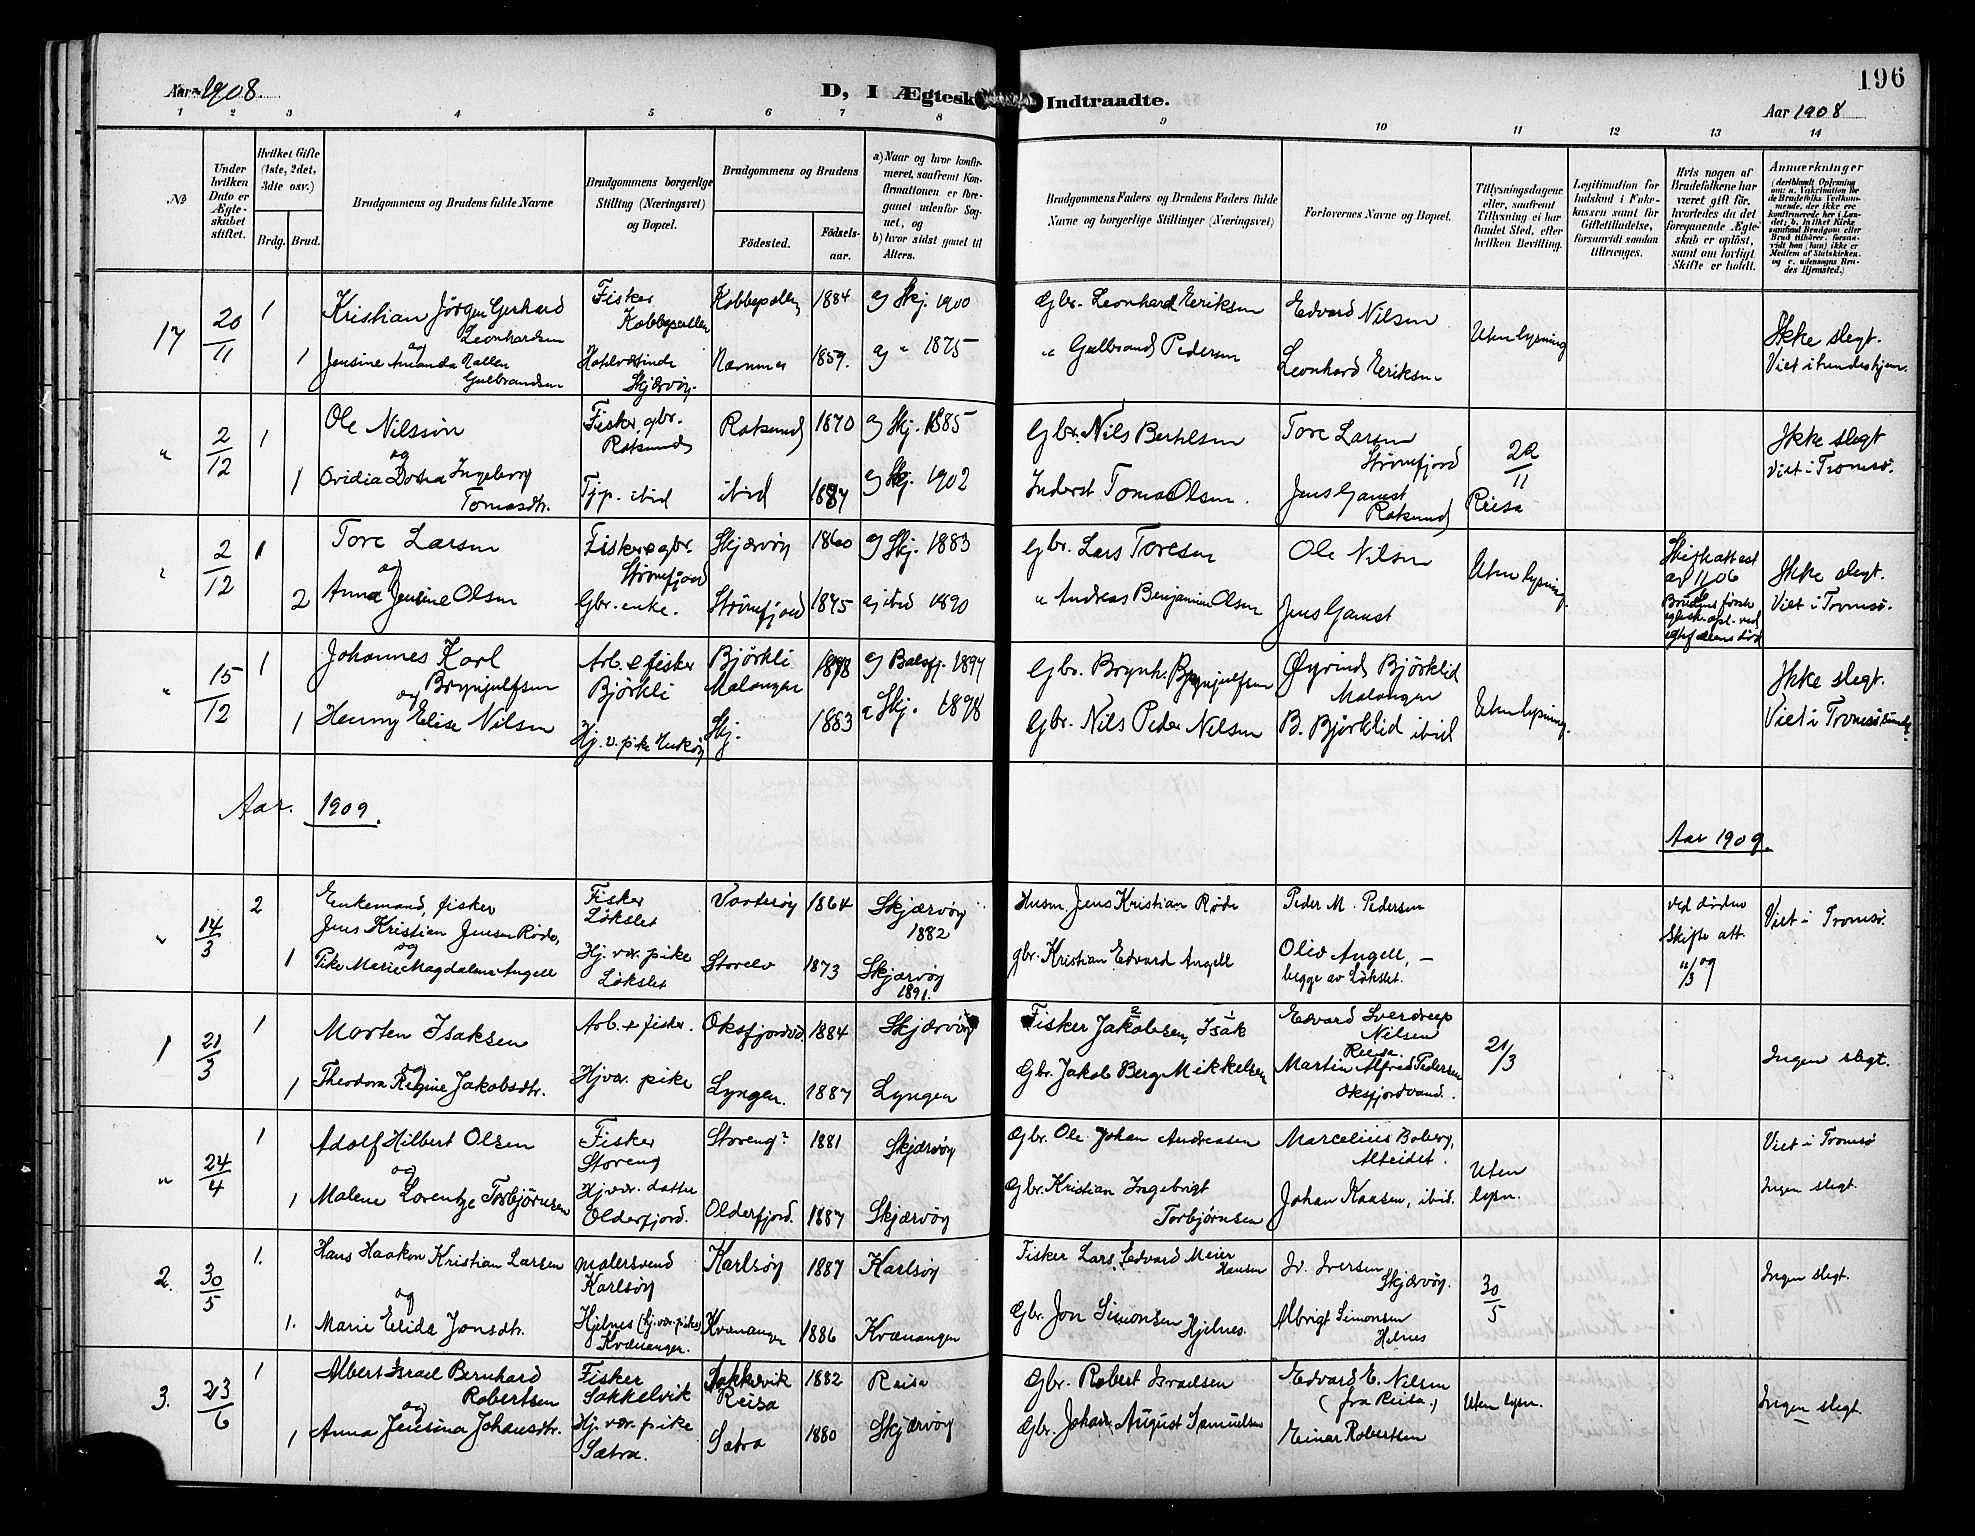 Aar 1908.
D, I Ægtesk
Indtraadte.
196
Aar 1908
1 2 3 4 5 6 7 8 9 10 11 12 13 14
No
Under hvilken Dato er Ægteskabet stiftet.
Hvilket Gifte (1ste, 2det, 3die osv.)
Brdg. Brud.
Brudgommens og Brudens fulde Navne
Brudgommens borgerlige Stilling (Næringsvei) og Bopæl.
Brudgommens og Brudens
Fødested.
Fødselsaar.
a) Naar og hvor konfirmeret, saafremt Konfirmationen er foregaaet udenfor Sognet, og
b) hvor sidst gaaet til Alters.
Brudgommens Faders og Brudens Faders fulde Navne og borgerlige Stillinger (Næringsvei)
Forlovernes Navne og Bopæl.
Tillysningsdagene eller, saafremt Tillysning ei har fundet Sted, efter hvilken Bevilling.
Legitimation for Indskud i Enkekassen samt for Giftetilladelse, forsaavidt saadan tiltrænges.
Hvis nogen af Brudefolkene har været gift før, hvorledes da det foregaaende Ægteskab er opløst, samt om lovligt Skifte er holdt.
Anmærkninger
17 20/11 1 Kristian Jörgen Gerhard Leonhardsen Fisker Kobbepollen Kobbepollen 1884 Skj. 1900 Gbr. Leonhard Eeriksen Edvard Nilsen Uten lysning Ikke slegt.
og
1 Jensine Amanda Nallen Gulbrandsen Skjærvöy. 1859. " 1875 " Gulbrand Pedersen Leonhard Eeriksen
" 2/12 1 Ole Nilssön Fisker, gbr. Rotsund Rotsund 1870 Skj. 1885 Gbr. Nils Bertelsen Tore Larsen Störmfjord 22/11 Reisa Ikke slegt Viet i Tromsö.
og
1 Ovidia Dotea Ingeborg Tomasdtr. Tjp. ibid ibid 1887 Skj. 1902 Inderst Tomas Olsen. Jens Gamst Rotsund
" 2/12 1 Tore Larsen Fisker & gbr. Störmfjord Skjærvöy 1860 Skj. 1883 Gbr. Lars Toresen Ole Nilsen Uten lysning. Skifteattest Ikke slegt. Viet i Tromsö.
og
2 Anna Jensine Olsen Gbr. enke. Störmfjord 1875 ibid 1890 " Andreas Benjamin Olsen Jens Gamst
" 15/12 1 Johannes Karl Brynjulfsen Arb. & fisker Björkli Björkli Malangen 1878 Balsfj. 1894 Gbr. Brynh. Brynjulfsen Øyvind Björklid Malangen Uten lysning. Ikke slegt. Viet i Tromsösund.
og
1 Henny Elise Nilsen Hj. v. pike Skj. 1883 Skj. 1898 Gbr. Nils Peder Nilsen B. Björklid ibid
Aar. 1909.
Aar 1909.
" 14/3 2 Enkemand, fisker Jens Kristian Jensen Røde, Fisker Løkslet Vortesöy 1864 Skjærvöy 1882 Husm. Jens Kristian Røde Peder M. Pedersen ved döden Skifte att. Viet i Tromsö.
og
1 Pike Marie Magdalene Angell Hj. vær. pike Løkslet Storelv 1873 Skjærvöy 1891. gbr. Kristian Edvard Angell Oliv Angell, – begge av Løkslet.
1 21/3 1 Morten Isaksen Arb. & fisker. Oksfjordvd. 1884 Skjærvöy Fisker Jakobsen, Isak Edvard Sverdrup Nilsen Reisa. 21/3 Ingen slegt.
og
1 Theodora Regine Jakobsdtr. Hj. vær. pike Lyngen. 1887 Lyngen Gbr. Jakob Berg Mikkelsen Martin Alfred Pedersen Oksfjordvand.
" 24/4 1 Adolf Hilbert Olsen Fisker Storeng Storeng 1881 Skjærvöy Gbr. Ole Johan Andreasen Marcelius Boberg, Alteidet. Uten lysn. Viet i Tromsö
og
1 Malene Lorentze Torbjörnsen Hj. vær. datter Olderfjord. Olderfjord. 1887 Skjærvöy Gbr. Kristian Ingebrigt Torbjörnsen Johan Kaasen, ibid. Ingen slegt.
2. 30/5 1. Hans Haakon Kristian Larsen malersvend Karlsöy Karlsöy 1887 Karlsöy Fisker Lars Edvard Meier Hansen Iv. Iversen Skjærvöy. 30/5 Ingen slegt.
og
1. Marie Elida Jonsdtr. Hjelnes (hj. vær. pike) Kvænanger. Kvænanger 1886 Kvænangen Gbr. Jon Simonsen Hjelnes. Albrigt Simonsen Helnes
3. 23/6 1 Albert Israel Bernhard Robertsen Fisker Sakkelvik Reisa 1882 Reisa Gbr. Robert Israelsen Edvard E. Nilsen (fra Reisa.) Uten lysn. Ingen slegt.
og
1 Anna Jensina Johansdtr. Hj. vær. pike Sætra. Sætra 1880 Skjærvöy Gbr. Johan August Samuelsen Einar Robertsen